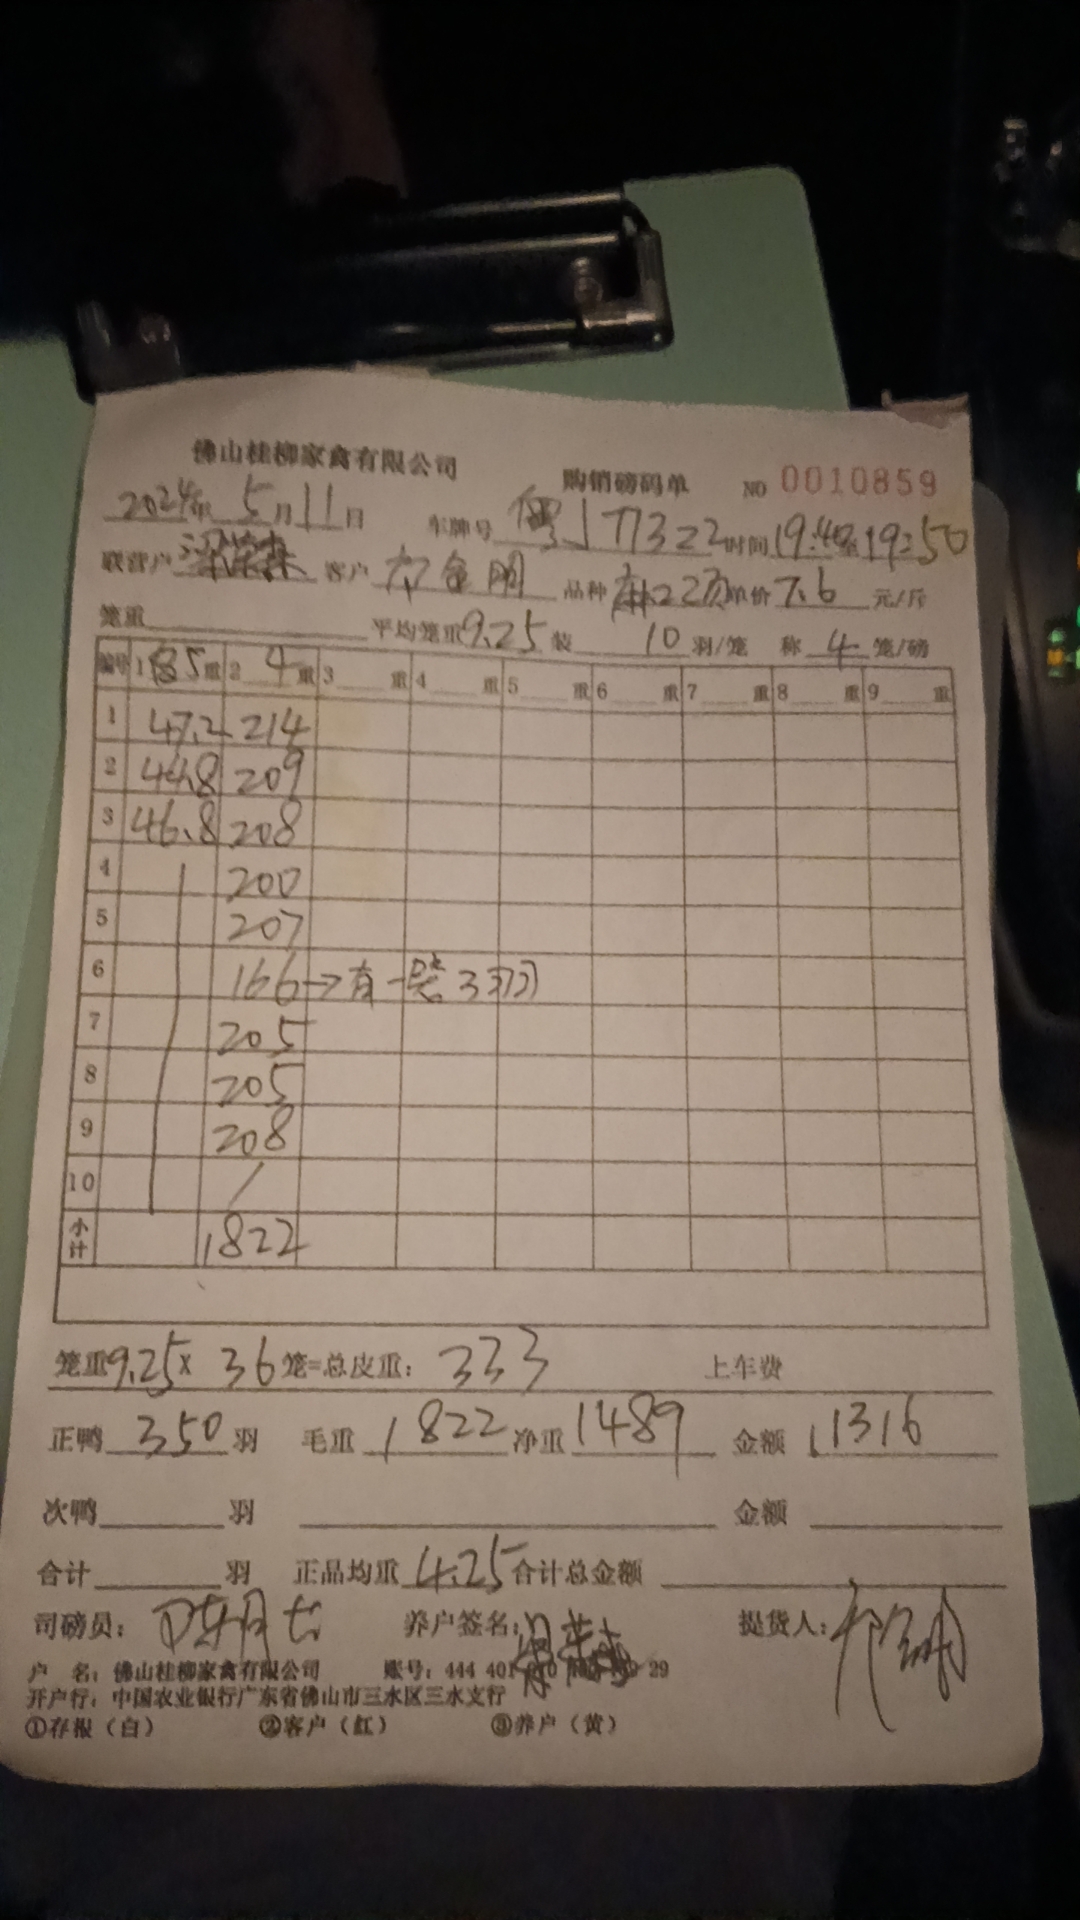 佛山桂柳家禽有限公司 购销磅码单 NO 0010859
2024年 5月11日 车牌号 粤J77322 时间 19:40至19:50
联营户 客户 邓金明 品种 麻22 单价 7.6 元/斤
笼重 平均笼重 9.25 装 10 羽/笼 称 4 笼/磅
编号 1 85重 2 4重 3 重 4 重 5 重 6 重 7 重 8 重 9 重
1 47.2 214
2 44.8 209
3 46.8 208
4 200
5 207
6 166→有一笼3羽
7 205
8 205
9 208
10 /
小计 1822
笼重9.25× 36 笼=总皮重: 333 上车费
正鸭 350 羽 毛重 1822 净重 1489 金额 11316
次鸭 羽 金额
合计 羽 正品均重 4.25 合计总金额
司磅员: 养户签名: 提货人:
户 名: 佛山桂柳家禽有限公司 账号: 444 401 29
开户行: 中国农业银行广东省佛山市三水区三水支行
①存根（白） ②客户（红） ③养户（黄）